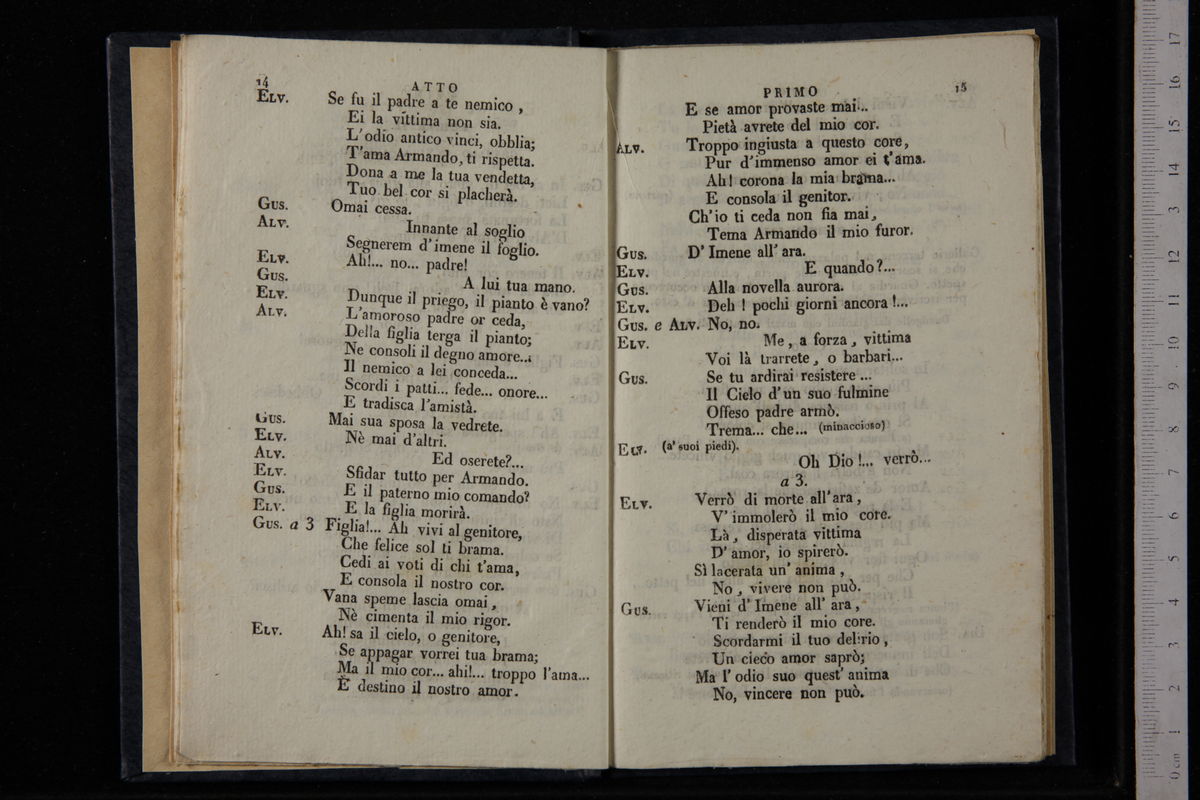 14
ATTO
ELV. Se fu il padre a te nemico ,
Ei la vittima non sia.
L'odio antico vinci, obblia;
T'ama Armando, ti rispetta.
Dona a me la tua vendetta,
Tuo bel cor si placherà.
GUS. Omai cessa.
ALV. Innante al soglio
Segnerem d'imene il foglio.
ELV. Ah!... no... padre!
GUS. A lui tua mano.
ELV. Dunque il priego, il pianto è vano?
ALV. L'amoroso padre or ceda,
Della figlia terga il pianto;
Ne consoli il degno amore...
Il nemico a lei conceda...
Scordi i patti... fede... onore...
E tradisca l'amistà.
GUS. Mai sua sposa la vedrete.
ELV. Nè mai d'altri.
ALV. Ed oserete?...
ELV. Sfidar tutto per Armando.
GUS. E il paterno mio comando?
ELV. E la figlia morirà.
GUS. a 3 Figlia!... Ah vivi al genitore,
Che felice sol ti brama.
Cedi ai voti di chi t'ama,
E consola il nostro cor.
Vana speme lascia omai ,
Nè cimenta il mio rigor.
ELV. Ah! sa il cielo, o genitore,
Se appagar vorrei tua brama;
Ma il mio cor... ahi!... troppo l'ama...
È destino il nostro amor.
PRIMO
15
E se amor provaste mai...
Pietà avrete del mio cor.
ALV. Troppo ingiusta a questo core,
Pur d'immenso amor ei t'ama.
Ah! corona la mia brama...
E consola il genitor.
Ch'io ti ceda non fia mai,
Tema Armando il mio furor.
GUS. D' Imene all' ara.
ELV. E quando?...
GUS. Alla novella aurora.
ELV. Deh ! pochi giorni ancora !...
GUS. e ALV. No, no.
ELV. Me, a forza, vittima
Voi là trarrete, o barbari...
GUS. Se tu ardirai resistere ...
Il Cielo d'un suo fulmine
Offeso padre armò.
Trema... che... (minaccioso)
ELV. (a' suoi piedi).
Oh Dio !... verrò...
a 3.
ELV. Verrò di morte all'ara ,
V' immolerò il mio core.
Là, disperata vittima
D' amor, io spirerò.
Sì lacerata un' anima ,
No, vivere non può.
GUS. Vieni d' Imene all' ara ,
Ti renderò il mio core.
Scordarmi il tuo delirio ,
Un cieco amor saprò;
Ma l' odio suo quest' anima
No, vincere non può.
0 cm 1 2 3 4 5 6 7 8 9 10 11 12 13 14 15 16 17